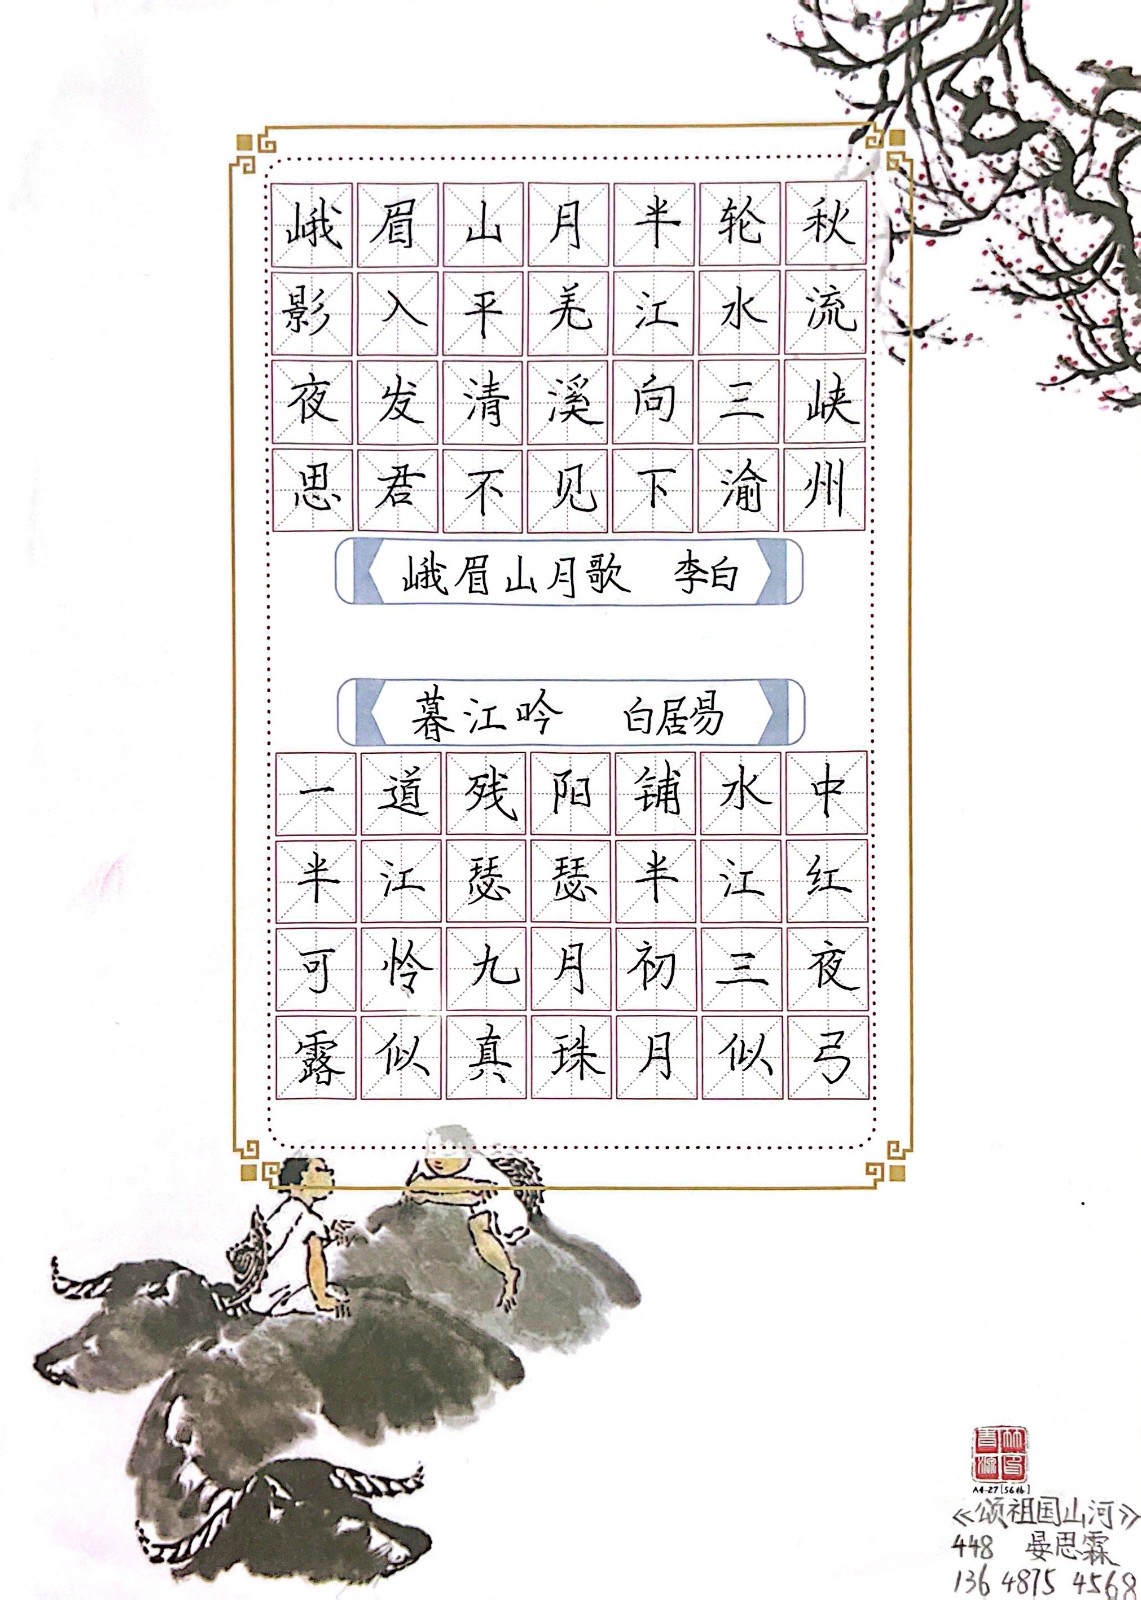 峨眉山月半轮秋
影入平羌江水流
夜发清溪向三峡
思君不见下渝州
峨眉山月歌 李白
暮江吟 白居易
一道残阳铺水中
半江瑟瑟半江红
可怜九月初三夜
露似真珠月似弓
A4-27[56格]
《颂祖国山河》
448 晏思霖
136 4875 4568